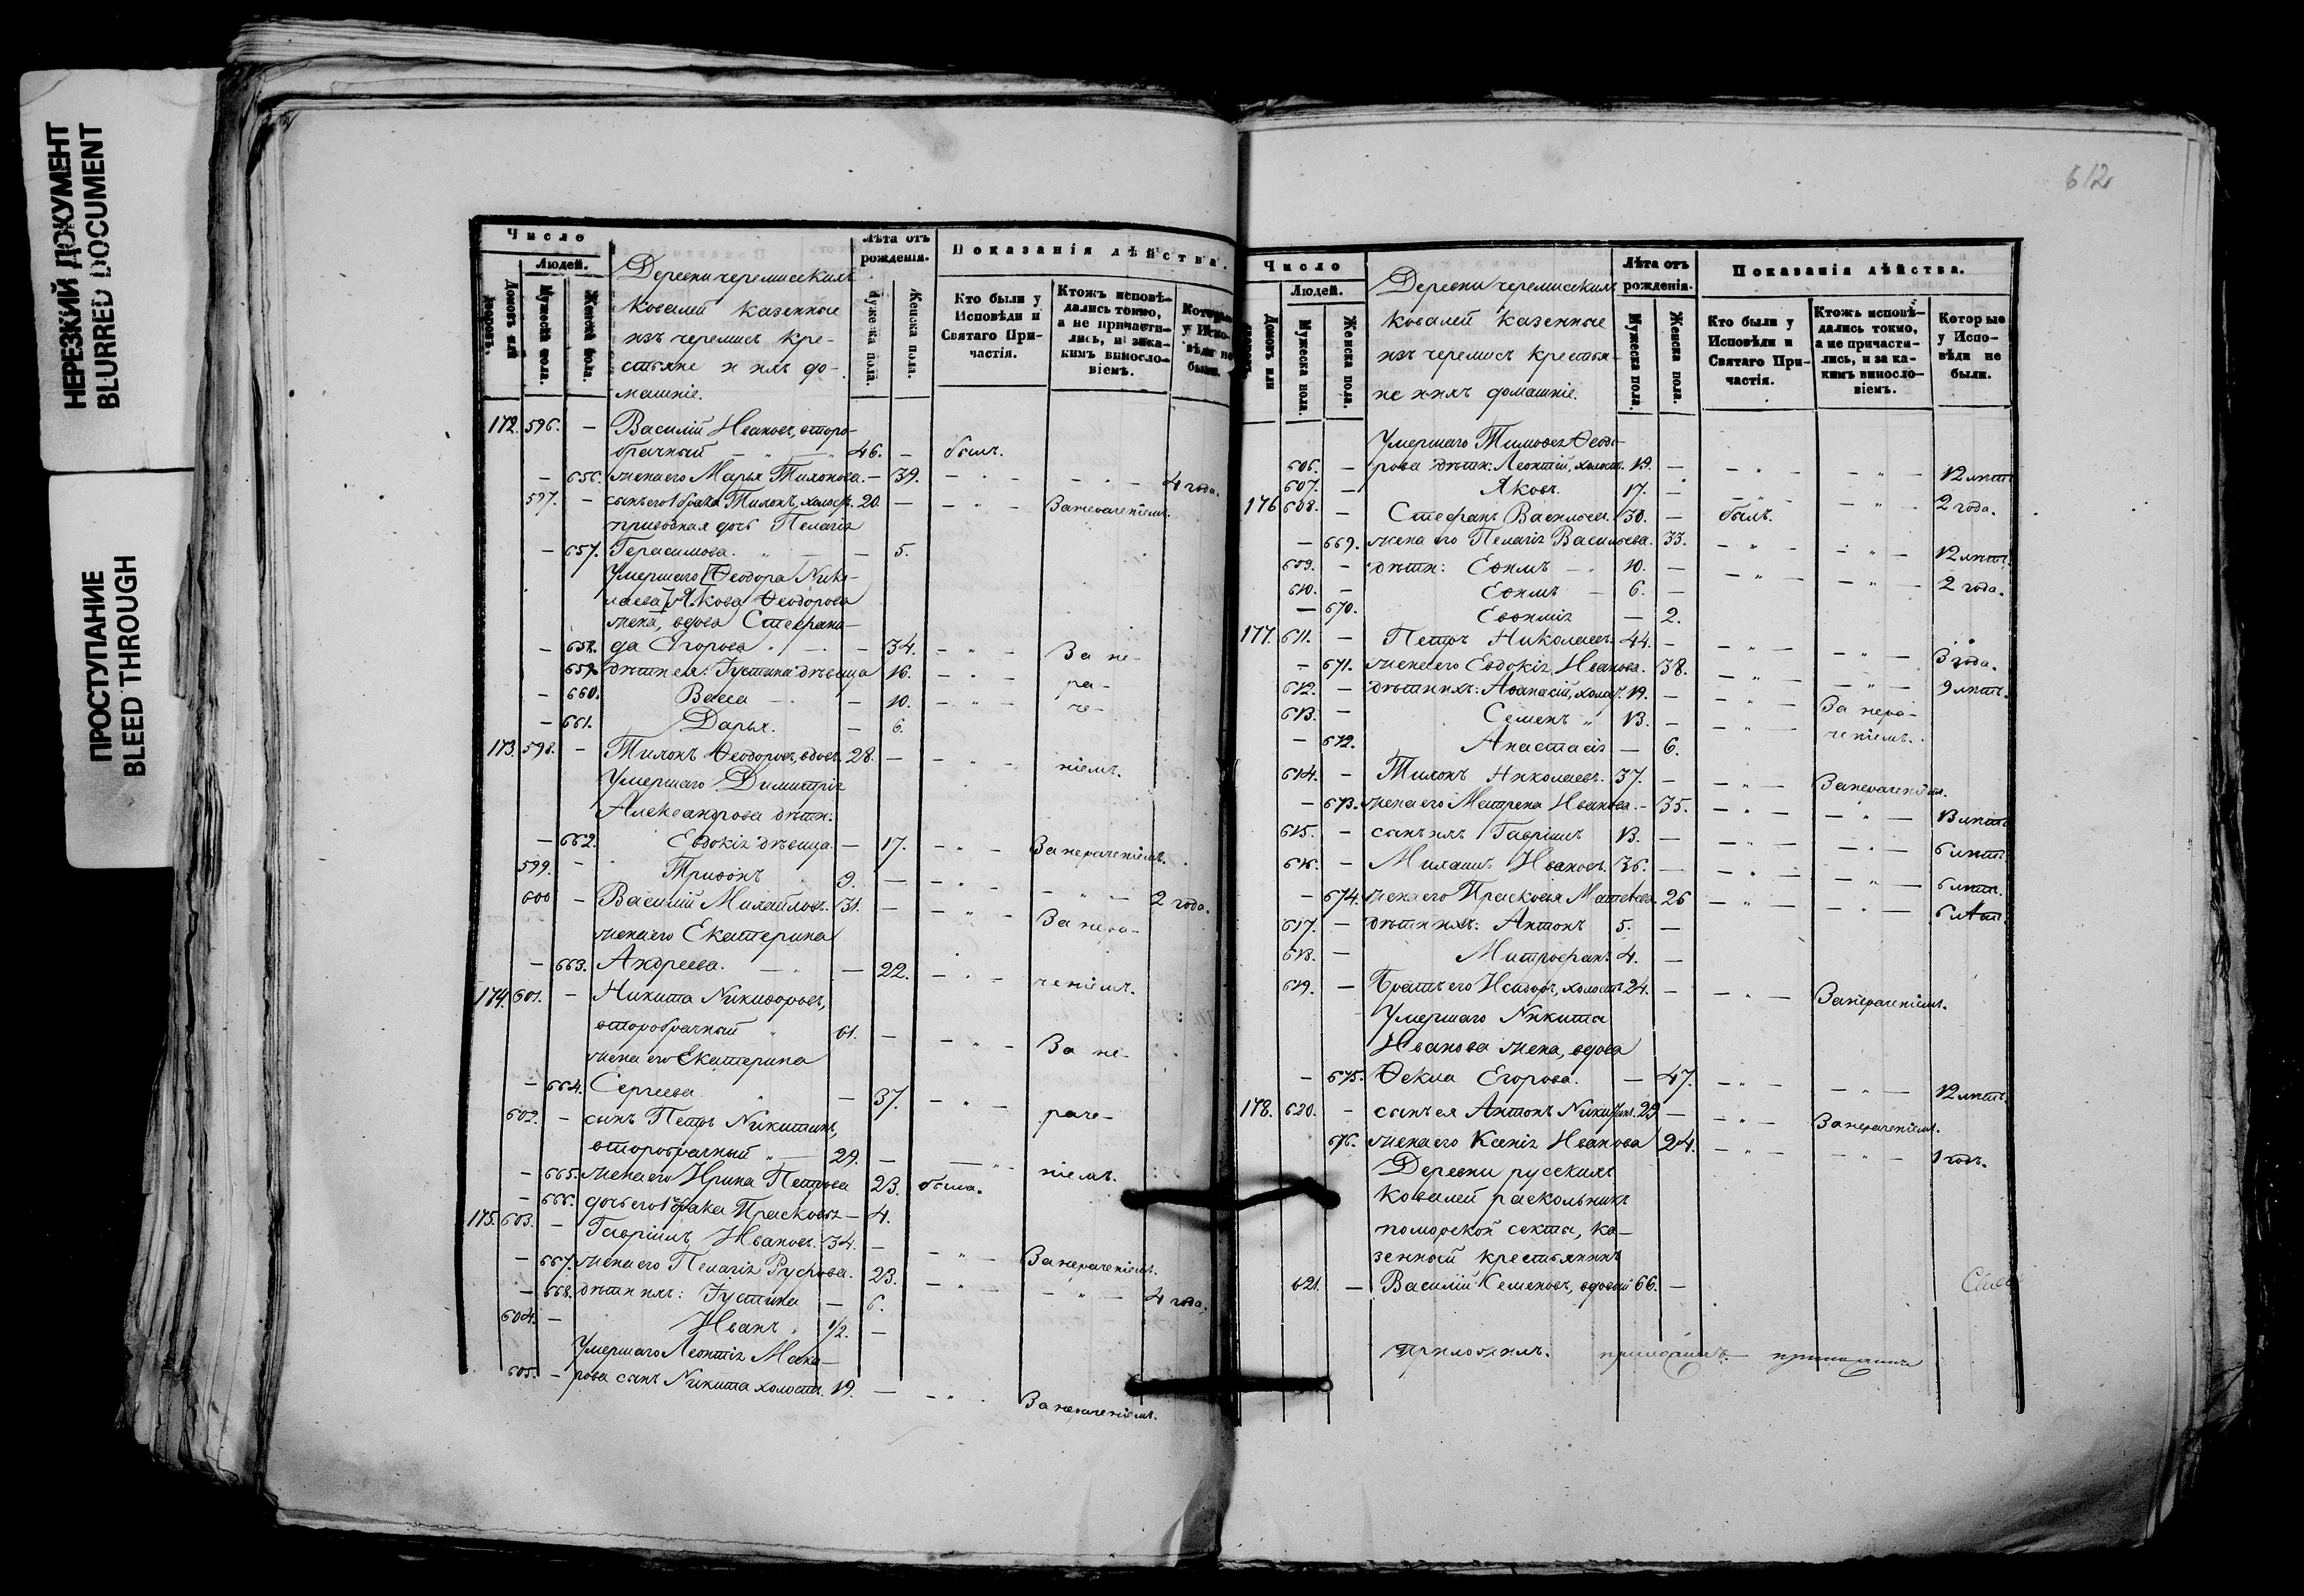 НЕРЕЗКИЙ ДОКУМЕНТ
BLURRED DOCUMENT
ПРОСТУПАНИЕ
BLEED THROUGH
Число
Людей.
Домовъ или дворовъ.
Мужеска пола.
Женска пола.
Деревни черемисскихъ
Ковалей казенные
изъ черемисъ кре-
стьяне и ихъ до-
машніе.
Лѣта отъ рожденія.
Мужеска пола.
Женска пола.
Показанія дѣйства.
Кто были у Исповѣди и Святаго При-частія.
Ктожъ исповѣ-дались токмо, а не причасти-лись, и за ка-кимъ винослo-віемъ.
Которые у Испо-вѣди не были.
172. 596. — Василій Ивановъ, второ-
брачный — " — 46. — былъ.
— 656. жена его Марья Тихонова. — 39. — " — — " — 4 года.
597. — сынъ его 1 брака Тихонъ, холостъ. 20. — — " — За нераченіемъ.
приводная дочь Пелагія
— 657. Герасимова. " — — 5.
Умершаго [Ѳеодора Нико-
лаева] Якова Ѳеодорова
жена, вдова Стефани-
— 658. да Егорова. — 34. — " — За не-
659. дѣти ея: Іустина дѣвица 16. — " — ра-
— 660. Васса — — 10. — " — че-
— 661. Дарья. — 6.
173. 598. — Тихонъ Ѳеодоровъ, вдовъ. 28. — — " — ніемъ.
Умершаго Димитрія
Александрова дѣти:
— 662. Евдокія дѣвица. — 17. — " — За нераченіемъ.
599. — Трифонъ 9. — — " — — " — 2 года.
600 — Василій Михайловъ. 31. — — " — За нера-
жена его Екатерина
— 663. Андреева. — " — — 22. — " — ченіемъ.
174. 601. — Никита Никифоровъ,
второбрачный " 61. — — " — За не-
жена его Екатерина
— 664. Сергеева " — 37. — " — раче-
602. — сынъ Петръ Никитинъ,
второбрачный " — 29. — — " — ніемъ.
— 665. жена его Ирина Петрова 23. была.
— 666. дочь его 1 брака Прасковья — 4.
175. 603. — Гавріилъ Ивановъ. 34. — — " — За нераченіемъ.
— 667. жена его Пелагія Руфова. 23. — " — — " — 4 года.
— 668. дѣти ихъ: Іустина — 6.
604. — Иванъ. 1/2. —
Умершаго Леонтія Мака-
605. — рова сынъ Никита холостъ. 19. — — " — За нераченіемъ.
612
Число
Людей.
Домовъ или дворовъ.
Мужеска пола.
Женска пола.
Деревни черемисскихъ
Ковалей казенные
изъ черемисъ крестья-
не и ихъ домашніе.
Лѣта отъ рожденія.
Мужеска пола.
Женска пола.
Показанія дѣйства.
Кто были у Исповѣди и Святаго При-частія.
Ктожъ исповѣ-дались токмо, а не причасти-лись, и за ка-кимъ винослo-віемъ.
Которые у Испо-вѣди не были.
Умершаго Тимофея Ѳеодо-
606. — рова дѣти: Леонтій, холостъ. 19. — — " — — " — 12 лѣтъ
607. — Яковъ. 17. — — " — — " — 2 года.
176 608. — Стефанъ Васильевъ. 30. — былъ.
— 669. жена его Пелагія Васильева. 33. — " — — " — 12 лѣтъ.
609. — дѣти: Евѳимъ — 10. — — " — — " — 2 года.
610. — Евѳимъ — 6. —
— 670. Евѳимія — 2.
177. 611. — Петръ Николаевъ. 44. — — " — — " — 3 года.
— 671. жена его Евдокія Иванова. 38. — " — — " — 9 лѣтъ.
612. — дѣти ихъ: Аѳанасій, холост. 19. — — " — За нера-
613. — Семенъ " 13. — — " — ченіемъ.
— 672. Анастасія — 6.
614. — Тихонъ Николаевъ. 37. — — " — За нераченіемъ.
— 673. жена его Матрена Иванова. — 35. — " — — " — 13 лѣтъ
615. — сынъ ихъ Гавріилъ 13. — — " — — " — 6 лѣтъ
616. — Михаилъ Ивановъ. 36. — — " — — " — 6 лѣтъ.
— 674. жена его Прасковья Матвѣева. 26 — " — — " — 6 лѣт.
617. — дѣти ихъ: Антонъ 5. —
618. — Митрофанъ 4. —
619. — Братъ его Исидоръ, холостъ 24. — — " — За нераченіемъ.
Умершаго Никита
Иванова жена, вдова
— 675. Ѳекла Егорова. — 47. — " — — " — 12 лѣтъ.
178. 620. — сынъ ея Антонъ Никитинъ. 29 — — " — За нераченіемъ.
676. жена его Ксенія Иванова 24. — " — — " — 1 годъ.
Деревни русскихъ
Ковалей раскольникъ
поморской секты, ка-
зенный крестьянинъ
621. — Василій Семеновъ, вдовый 66. —